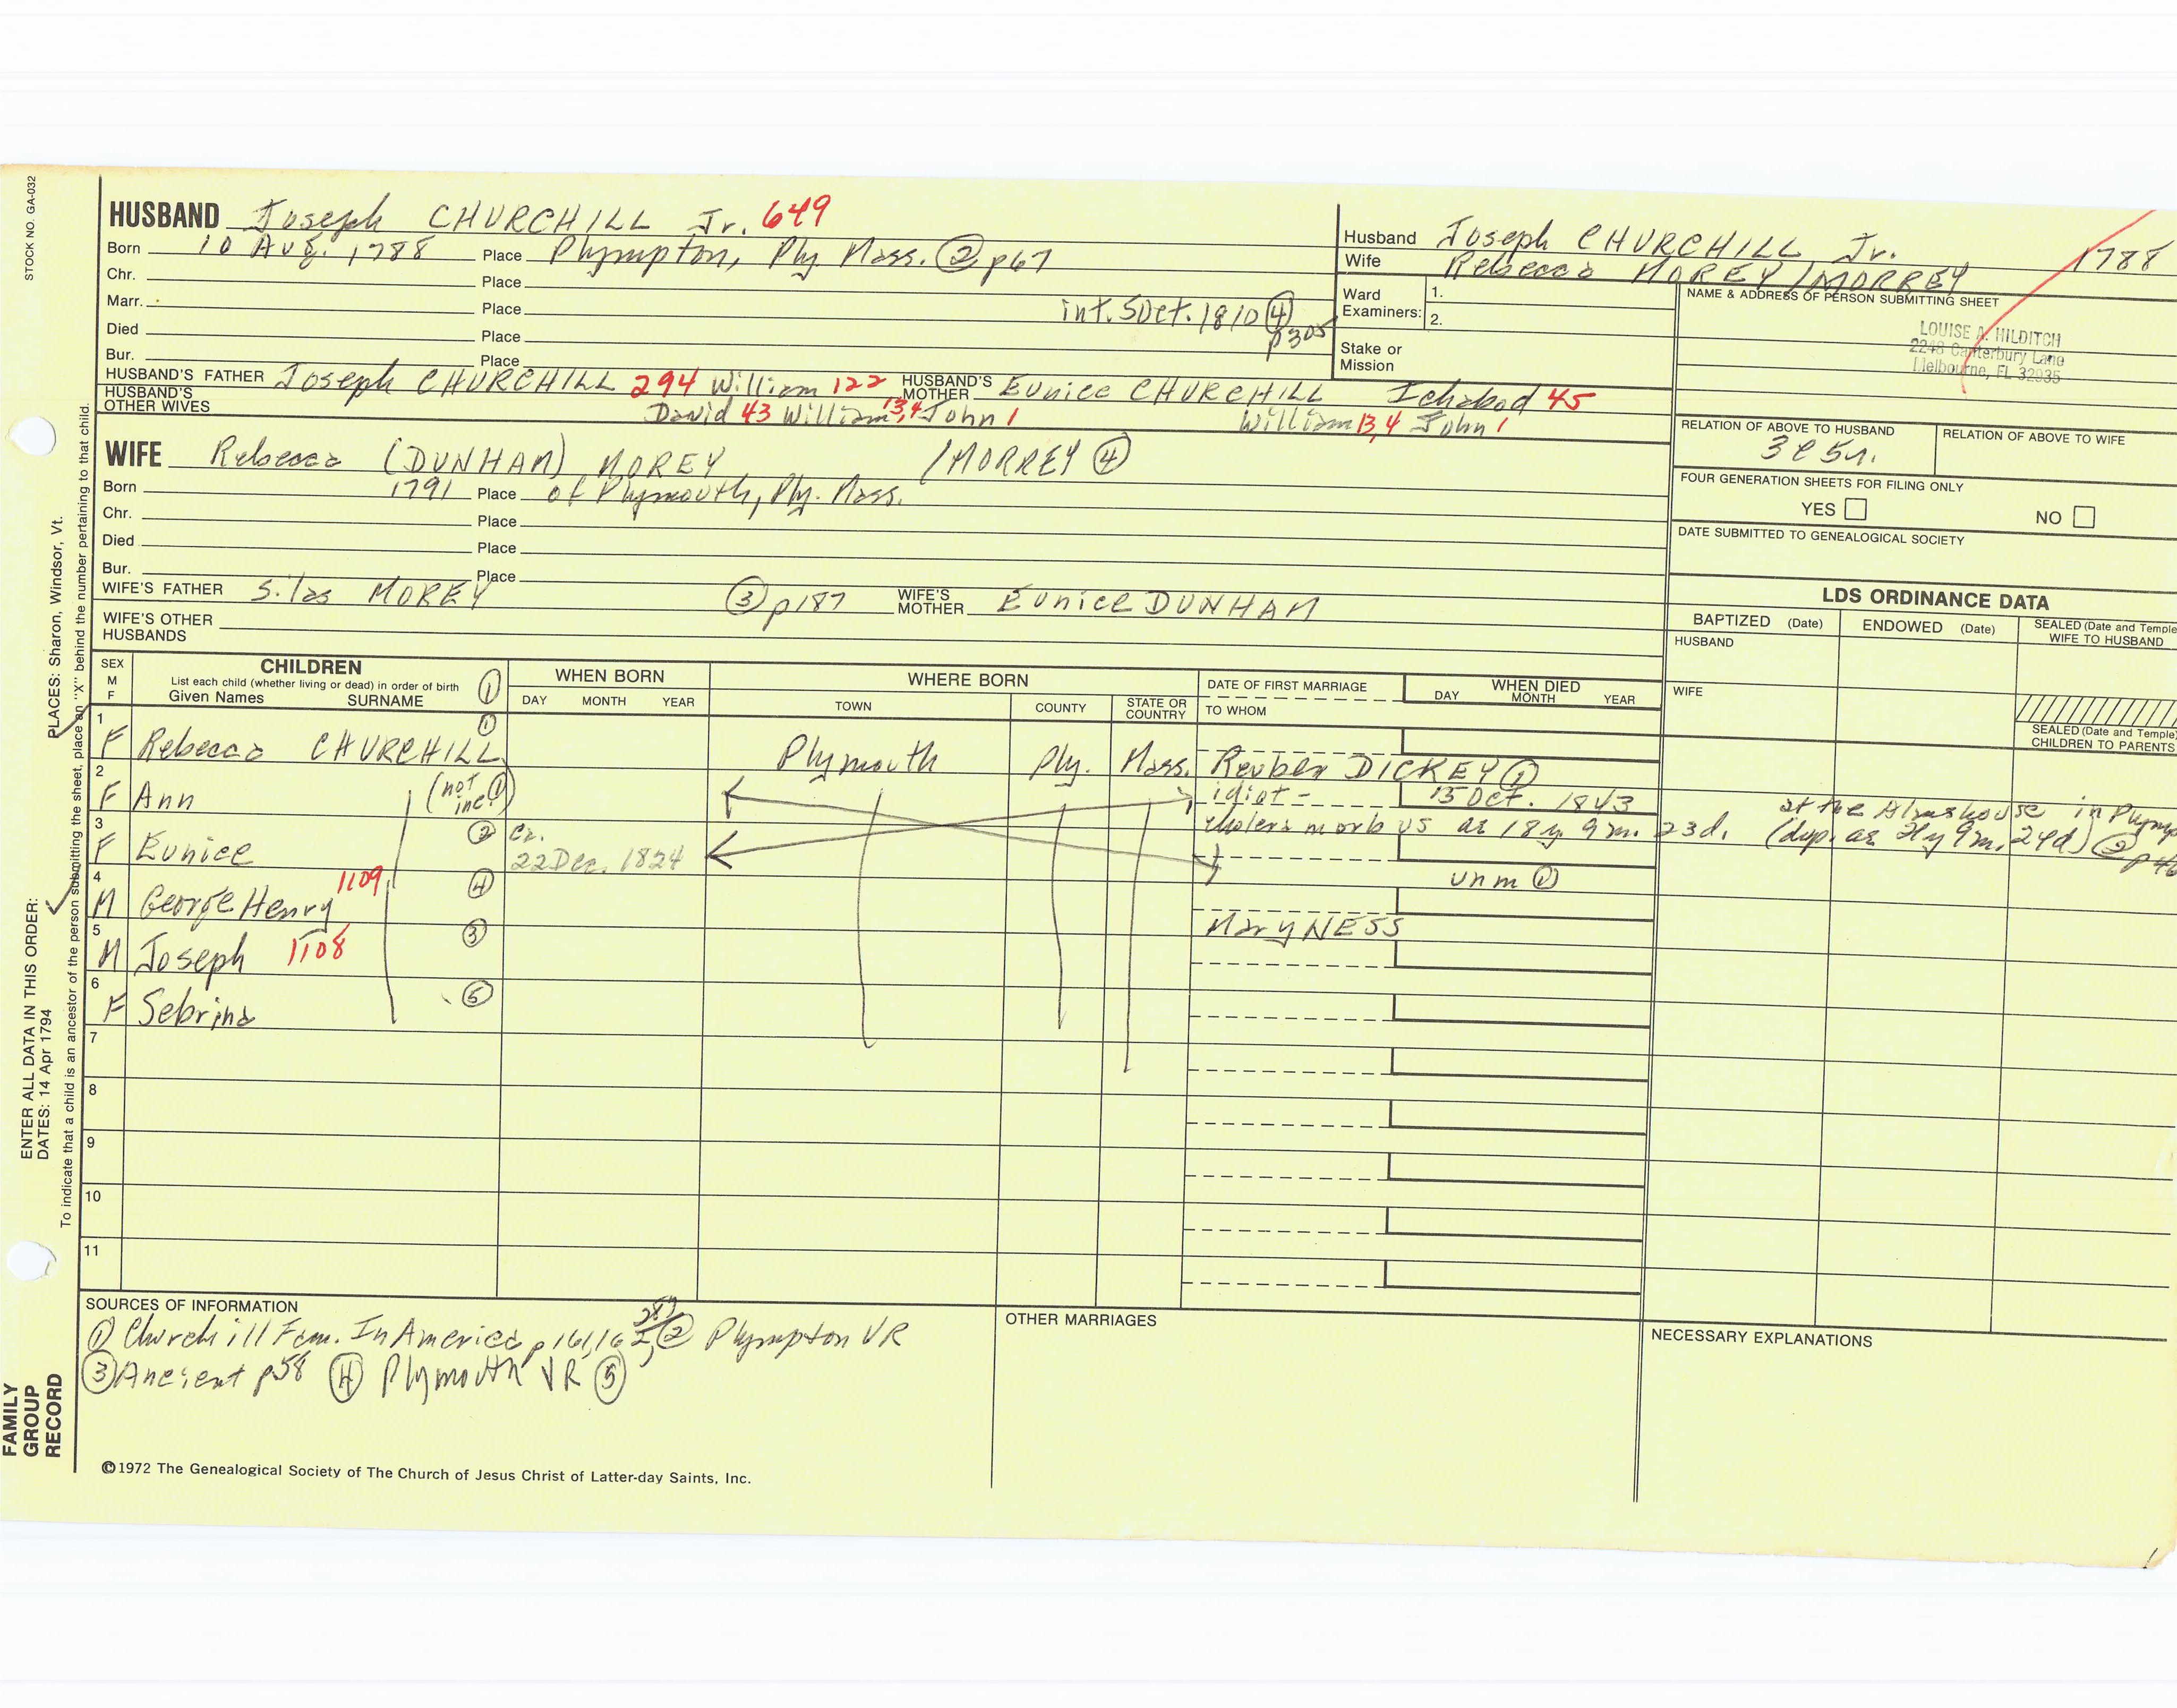 STOCK NO. GA-032
HUSBAND Joseph CHURCHILL Jr. 649
Born 10 Aug. 1788 Place Plympton, Ply. Mass. ② p67
Chr. Place
Marr. Place int. 5 Oct. 1810 ④ p305
Died Place
Bur. Place
HUSBAND'S FATHER Joseph CHURCHILL 294 William 122 HUSBAND'S MOTHER Eunice CHURCHILL Ichabod 45
HUSBAND'S OTHER WIVES David 43 William 13,4 John 1 William 13,4 John 1
WIFE Rebecca (DUNHAM) MOREY /MORREY ④
Born 1791 Place of Plymouth, Ply. Mass.
Chr. Place
Died Place
Bur. Place
WIFE'S FATHER Silas MOREY ③ p187 WIFE'S MOTHER Eunice DUNHAM
WIFE'S OTHER HUSBANDS
Husband Joseph CHURCHILL, Jr. 1788
Wife Rebecca MOREY/MORREY
Ward Examiners: 1.
2.
Stake or Mission
NAME & ADDRESS OF PERSON SUBMITTING SHEET
LOUISE A. HILDITCH
2248 Canterbury Lane
Melbourne, FL 32935
RELATION OF ABOVE TO HUSBAND RELATION OF ABOVE TO WIFE
FOUR GENERATION SHEETS FOR FILING ONLY
YES NO
DATE SUBMITTED TO GENEALOGICAL SOCIETY
LDS ORDINANCE DATA
BAPTIZED (Date) ENDOWED (Date) SEALED (Date and Temple) WIFE TO HUSBAND
HUSBAND
WIFE
SEALED (Date and Temple) CHILDREN TO PARENTS
SEX M F CHILDREN ①
List each child (whether living or dead) in order of birth
Given Names SURNAME
WHEN BORN
DAY MONTH YEAR
WHERE BORN
TOWN COUNTY STATE OR COUNTRY
DATE OF FIRST MARRIAGE
TO WHOM
WHEN DIED
DAY MONTH YEAR
1 F Rebecca CHURCHILL ① Plymouth Ply. Mass. Reuben DICKEY ①
2 F Ann (not in ①) idiot- 15 Oct. 1843 at the Almshouse in Plymp
cholera morbus ae 18y 9m. 23d. (dup. ae 21y 9m. 24d) ②
3 F Eunice ② Cr. 22 Dec. 1824
4 M George Henry 1109 ④ unm ①
5 M Joseph 1108 ③ Mary NESS
6 F Sebrina ⑤
7
8
9
10
11
SOURCES OF INFORMATION
① Churchill Fam. In America p161,162, ② Plympton VR
③ Ancient p58 ④ Plymouth VR ⑤
OTHER MARRIAGES
NECESSARY EXPLANATIONS
©1972 The Genealogical Society of The Church of Jesus Christ of Latter-day Saints, Inc.
FAMILY GROUP RECORD
ENTER ALL DATA IN THIS ORDER:
DATES: 14 Apr 1794
PLACES: Sharon, Windsor, Vt.
To indicate that a child is an ancestor of the person submitting the sheet, place an "X" behind the number pertaining to that child.